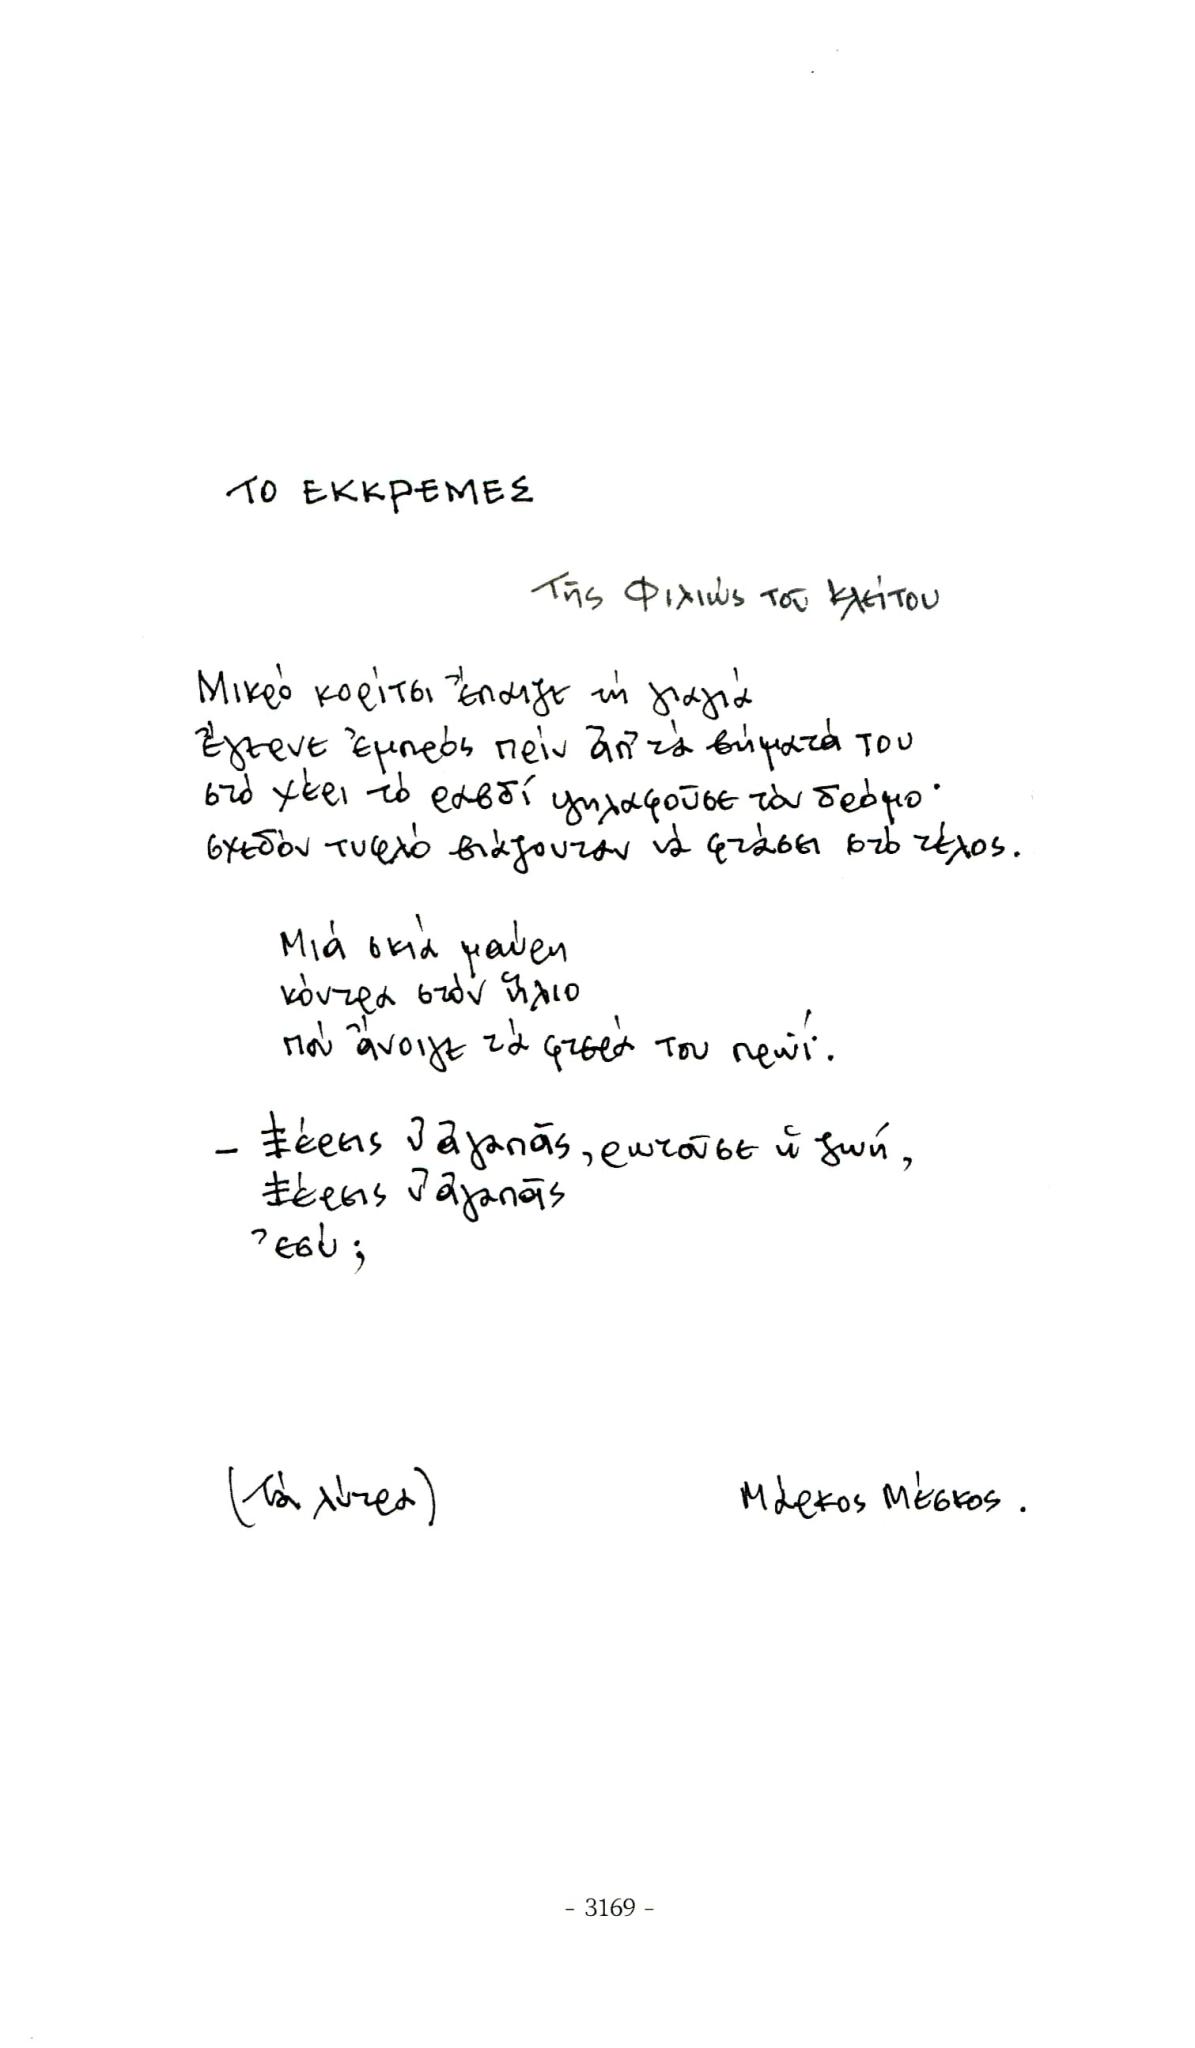 ΤΟ ΕΚΚΡΕΜΕΣ
Τῆς Φιλιῶς τοῦ Κλείτου
Μικρό κορίτσι ἔπαιζε τή γιαγιά
Ἔγερνε ἐμπρός πρίν ἀπ' τά βήματά του
στό χέρι τό ραβδί ψηλαφοῦσε τόν δρόμο·
σχεδόν τυφλό βιάζουνταν νά φτάσει στό τέλος.
Μιά σκιά μαύρη
κόντρα στόν ἥλιο
πού ἄνοιγε τά φτερά του πρωί.
– Ξέρεις ν' ἀγαπᾶς, ρωτοῦσε ἡ ζωή,
Ξέρεις ν' ἀγαπᾶς
ἐσύ;
(Τά λύτρα) Μάρκος Μέσκος.
- 3169 -